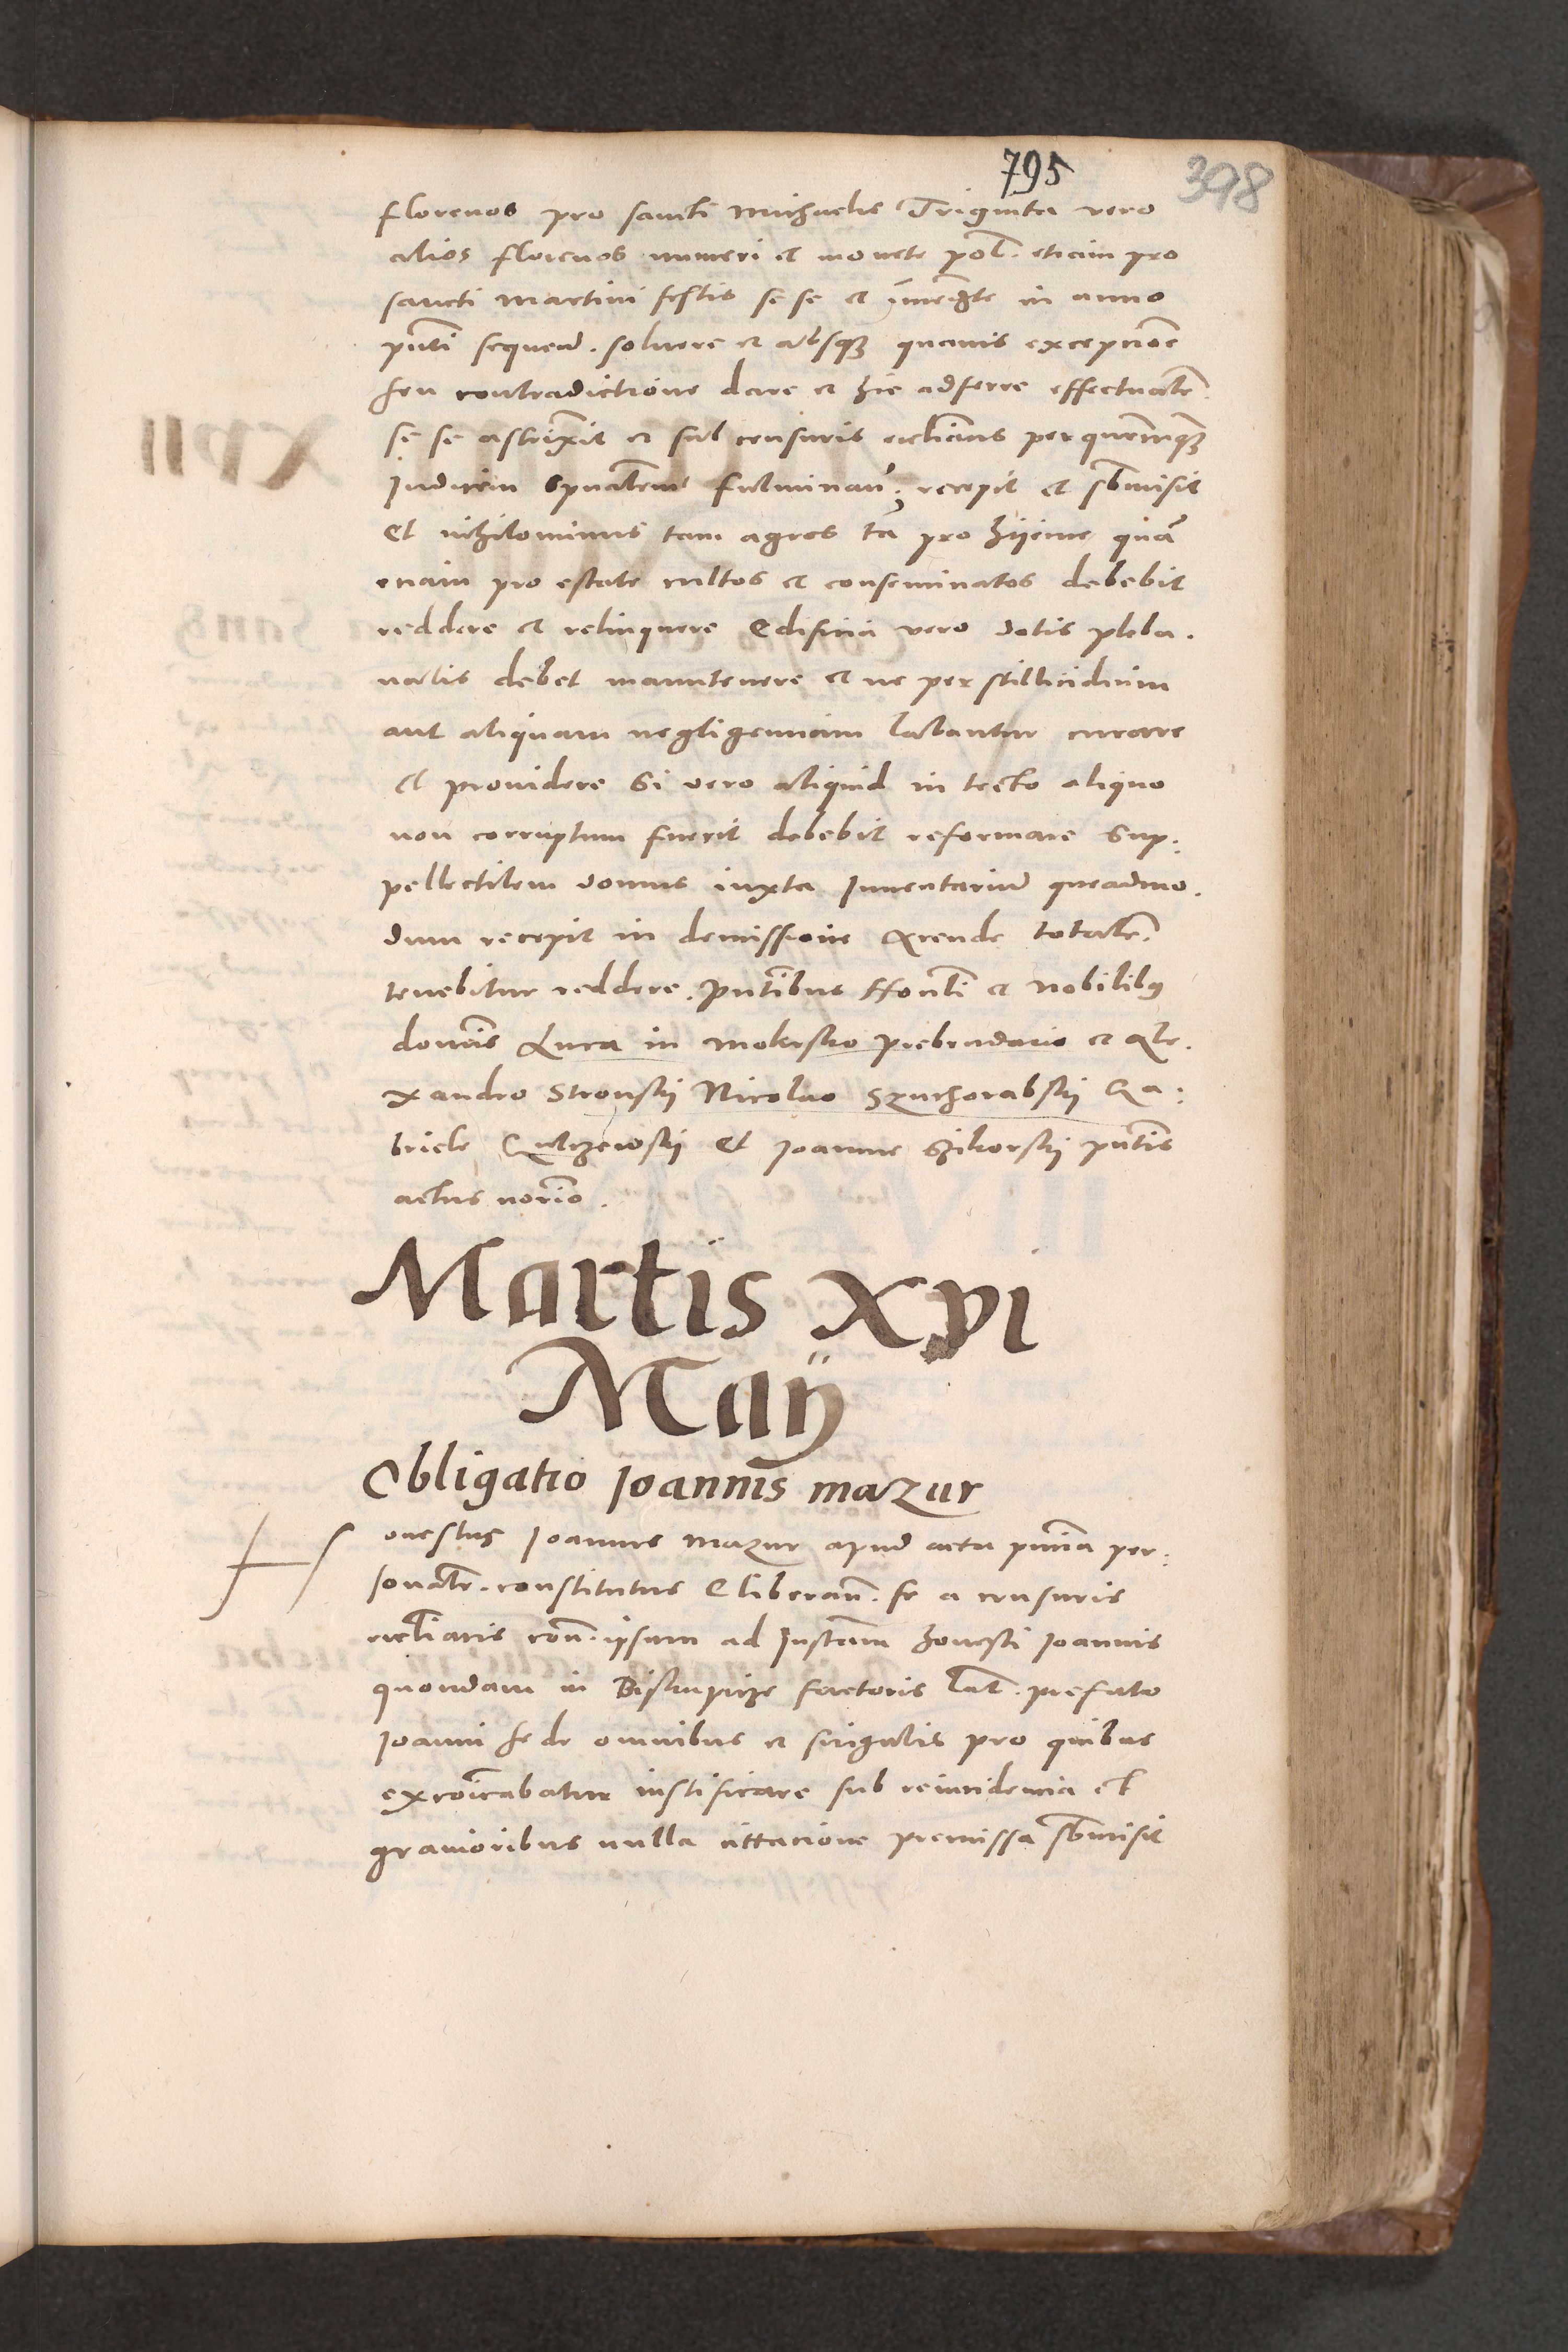 795
398
florenos pro sancti Michaelis Triginta vero
alios florenos numeri et monete pol. etiam pro
sancti Martini festis se se et in anno
pnti sequen. soluere et absq quauis excepcione
seu contradictione dare et hic adferre effectualr.
se se astrinxit et sub censuris ecclianis per quemcunq
Iudicem spualem fulminan. recepit et sbmisit
Et nihilominus tam agros ta pro hijeme qua
etiam pro estate cultos et conseminatos debebit
reddere et relinquere Edificia vero dotis pleba.
nalis debet manutenere et ne per stillicidium
aut aliquam negligenciam labantur curare
et prouidere Si vero aliquid in tecto aliquo
non corruptum fuerit debebit reformare Sup:
pellectilem domus iuxta Inuentariu queadmo.
dum recepit in demissione arende totalr.
tenebitur reddere. Pntibus ffonti et Nobilibus
domis Luca in Mokrsko prebendario et Ale.
xandro Stronskij Nicolao Szuchorabskij Ga:
briele Gulczewskij et Joanne Szikorskij pntis
actus norio.
Martis XVI
Maij
Obligatio Joannis Mazur
Honestus Joannes Mazur apud acta pntia per:
sonalr. constitutus Et liberan. se a censuris
ecclianis con. ipsum ad Instam honesti Joannis
quondam in Biskupicze factoris lat. prefato
Joanni se de omnibus et singulis pro quibus
excoicabatur iustificare sub reincidencia et
grauioribus nulla cittacione premissa sbmisit